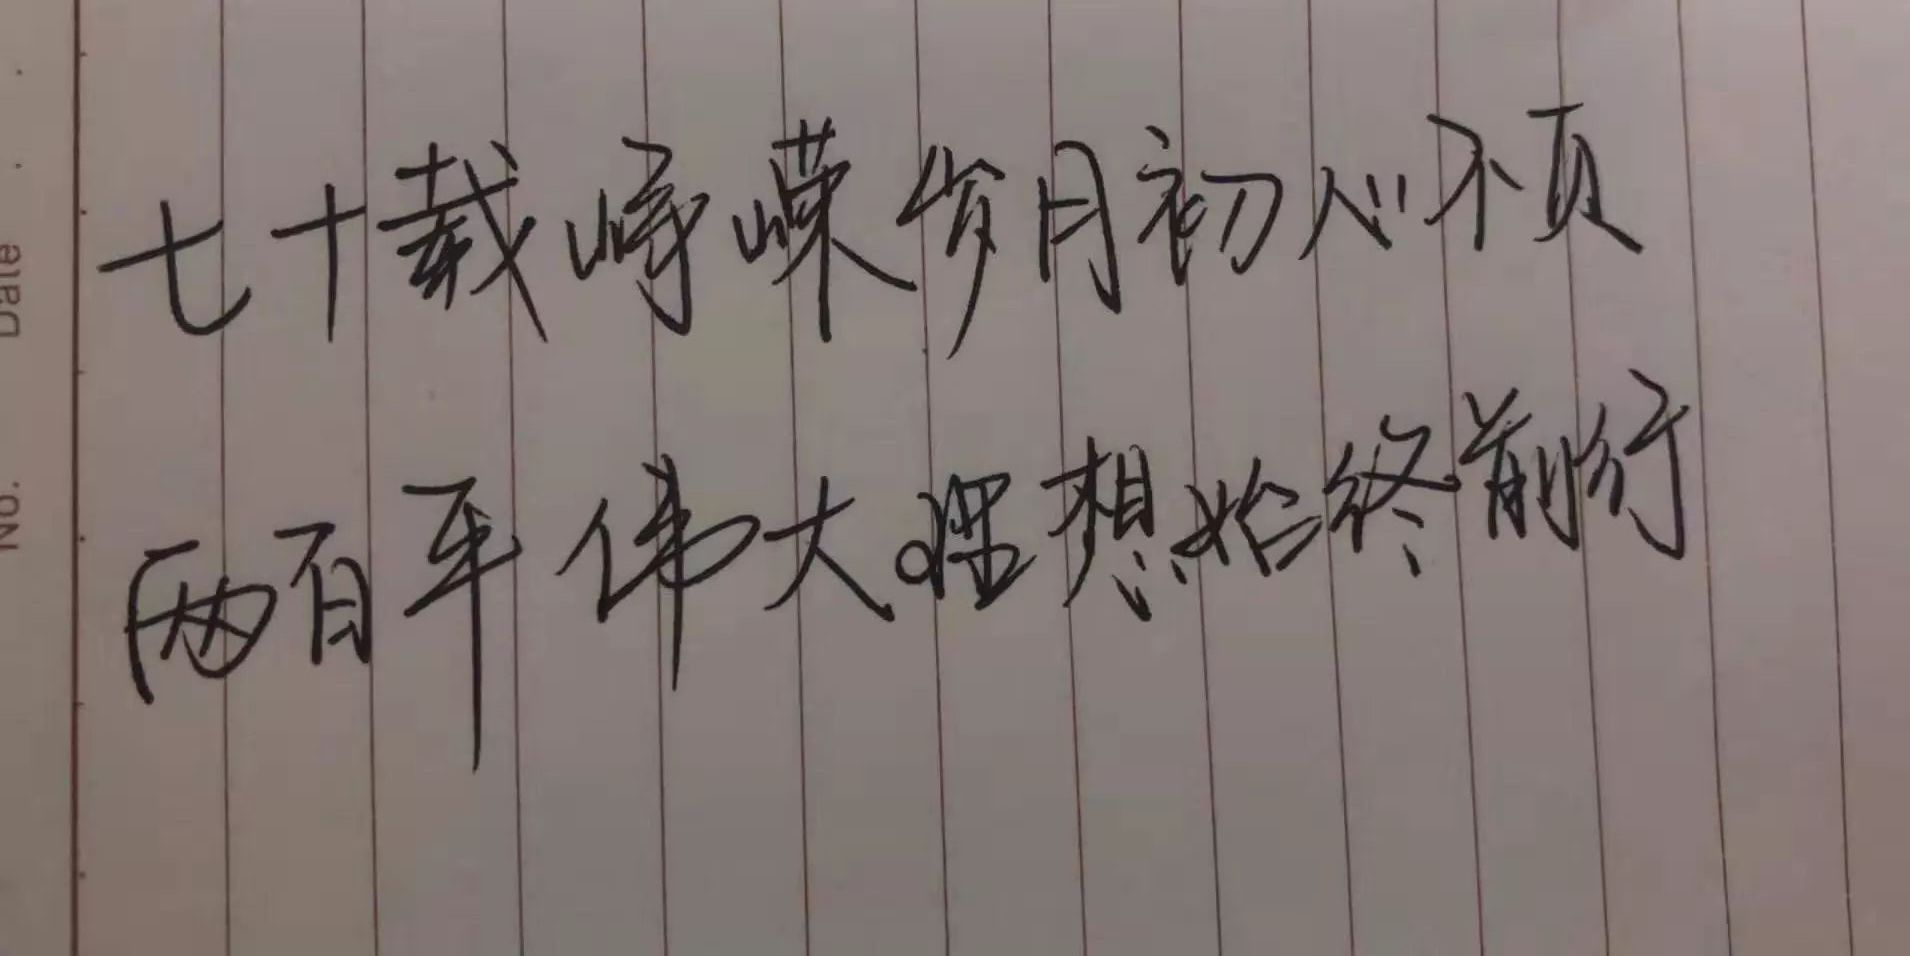 七十载峥嵘岁月初心不负
两百年伟大理想始终前行
Date
No.